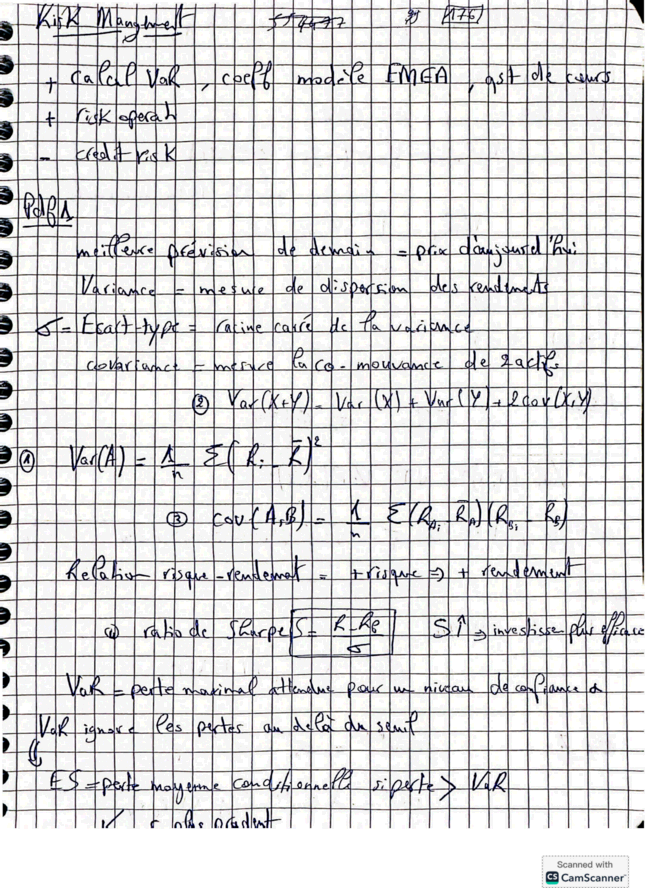 Risk Mangment 176
+ calcul VaR, coeff modèle EMEA, qst de cours
+ risk operat
- credit risk
Pdf 1
meilleure prévision de demain = prix d'aujourd'hui
Variance = mesure de dispersion des rendements
σ = Ecart-type = racine carré de la variance
covariance = mesure la co-mouvance de 2 actifs
② Var(X+Y) = Var(X) + Var(Y) + 2cov(X,Y)
① Var(A) = 1/n Σ(Ri - R̄)²
③ cov(A,B) = 1/n Σ(RAi - R̄A)(RBi - R̄B)
Relation risque-rendemet = + risque => + rendement
④ ratio de Sharpe S = R - Rf / σ S↑ => investisse plus efficace
VaR = perte maximal attendue pour un niveau de confiance α
VaR ignore les pertes au delà du seuil
ES = perte moyenne conditionnelle si perte > VaR
plus prudent
Scanned with
CS CamScanner